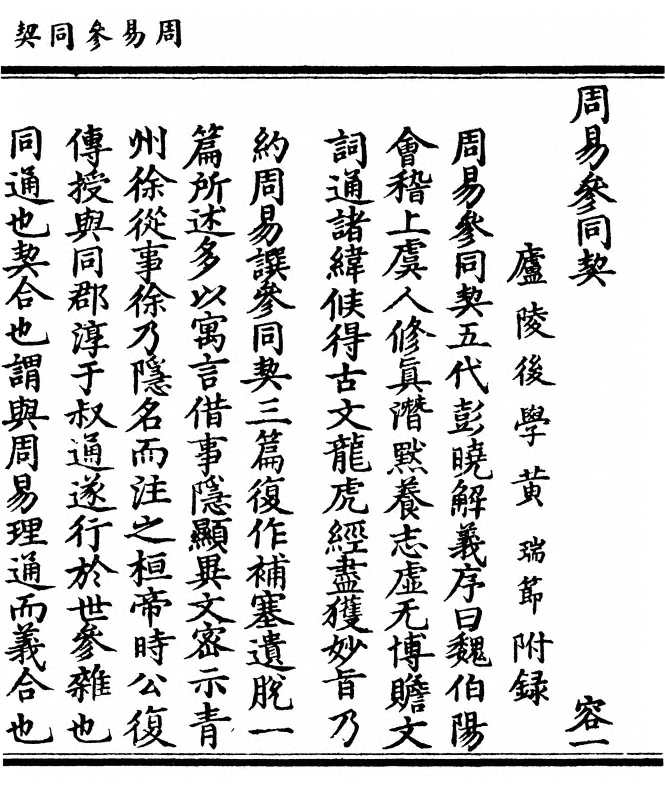 周易參同契
周易參同契 容一
廬陵後學黄瑞節附錄
周易參同契五代彭曉解義序曰魏伯陽
會稽上虞人修眞潛默養志虛无博贍文
詞通諸緯候得古文龍虎經盡獲妙旨乃
約周易譔參同契三篇復作補塞遺脫一
篇所述多以寓言借事隱顯異文密示青
州徐從事徐乃隱名而注之桓帝時公復
傳授與同郡淳于叔通遂行於世參雜也
同通也契合也謂與周易理通而義合也